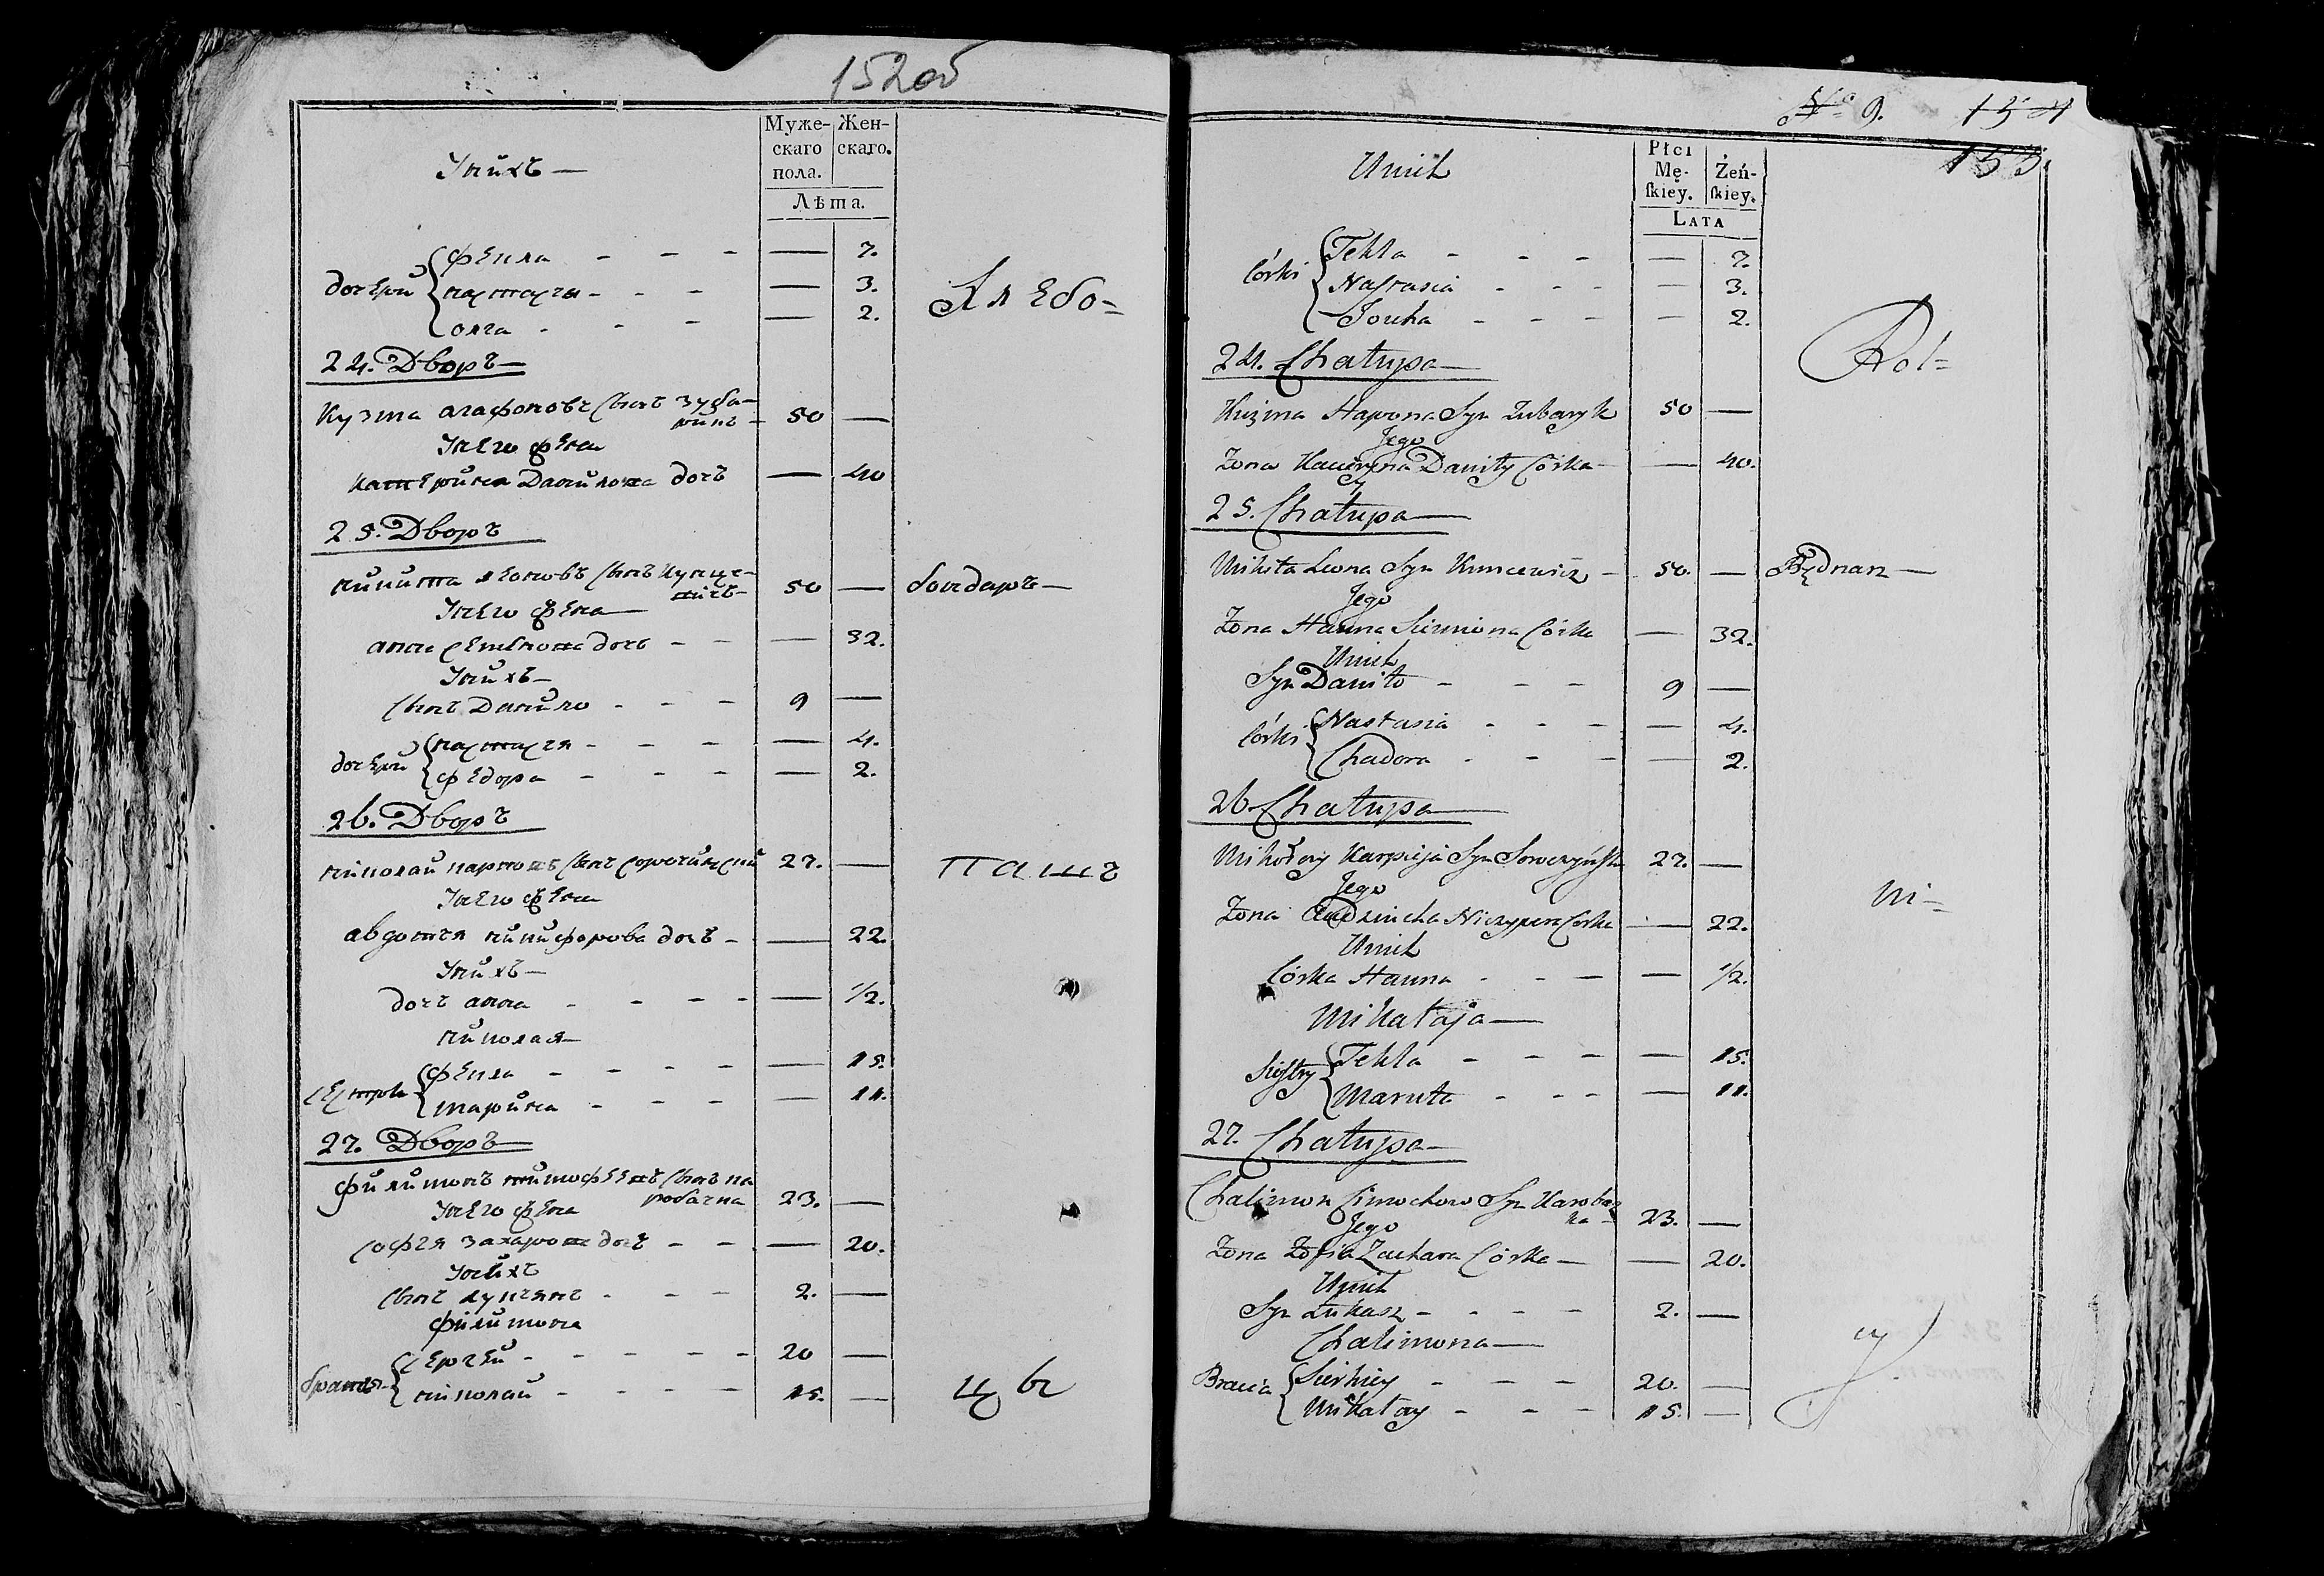 152об
Муже-
скаго
пола.
Жен-
скаго.
Лѣта.
Унихъ —
дочери
фекла - - - — 7.
настасья - - - — 3.
олга - - - — 2.
Хлебо-
24. Дворъ —
Кузма агафоновъ сынъ зуба-
рикъ - 50 —
Унего жена
катерина Данилова дочь — 40
25. Дворъ
никита леоновъ сынъ Кунце-
вичъ - 50 — бондаръ —
Унего жена —
анна семенова дочь - - — 32.
Унихъ —
сынъ Данило - - - 9 —
дочери
настасья - - - — 4.
федора - - - — 2.
26. Дворъ
николай карповъ сынъ сорочинский 27. —
пашъ
Унего жена
авдотья никифорова дочь - — 22.
Унихъ —
дочь анна - - - - — 1/2.
николая —
сестры
фекла - - - - — 15.
марина - - - — 11.
27. Дворъ —
филимонъ тимофеевъ сынъ ка
робачка 23. —
Унего жена
софья захарова дочь - - — 20.
Унихъ
сынъ лукьянъ - - - 2. —
филимона
братья
сергей - - - - - 20 —
николай - - - - 15. —
цы
№ 9. 154
153.
Płci
Mę-
skiey.
Żeń-
skiey.
LATA
Unich
Córki
Tekla - - - — 7.
Nastasia - - - — 3.
Jouha - - - — 2.
Rol-
24. Chałupa —
Kuźma Hapona Syn Zubaryk 50 —
Jego
Zona Kateryna Daniły Córka — — 40.
25. Chałupa —
Mikita Leona Syn Kuncewicz - 50. — Będnarz —
Jego
Zona Hanna Siemiona Córka — 32.
Unich
Syn Daniło - - - 9 —
Córki
Nastasia - - - — 4.
Chadora - - - — 2.
26. Chałupa —
Mikołay Karpieja Syn Soroczyński 27. —
Jego
ni-
Zona Eudziucha Niczypora Córka — 22.
Unich
Córka Hanna - - - — 1/2.
Mikałaja —
Siestry
Tekla - - - — 15.
Maruta - - - — 11.
27. Chałupa —
Chalimon Cimochow Syn Karobacz
ka - 23. —
Jego
Zona Zofia Zachara Córka — — 20.
Unich
Syn Łukasz - - - - 2. —
Chalimona —
cy
Bracia
Sierhiey - - - 20. —
Mikałay - - - 15. —